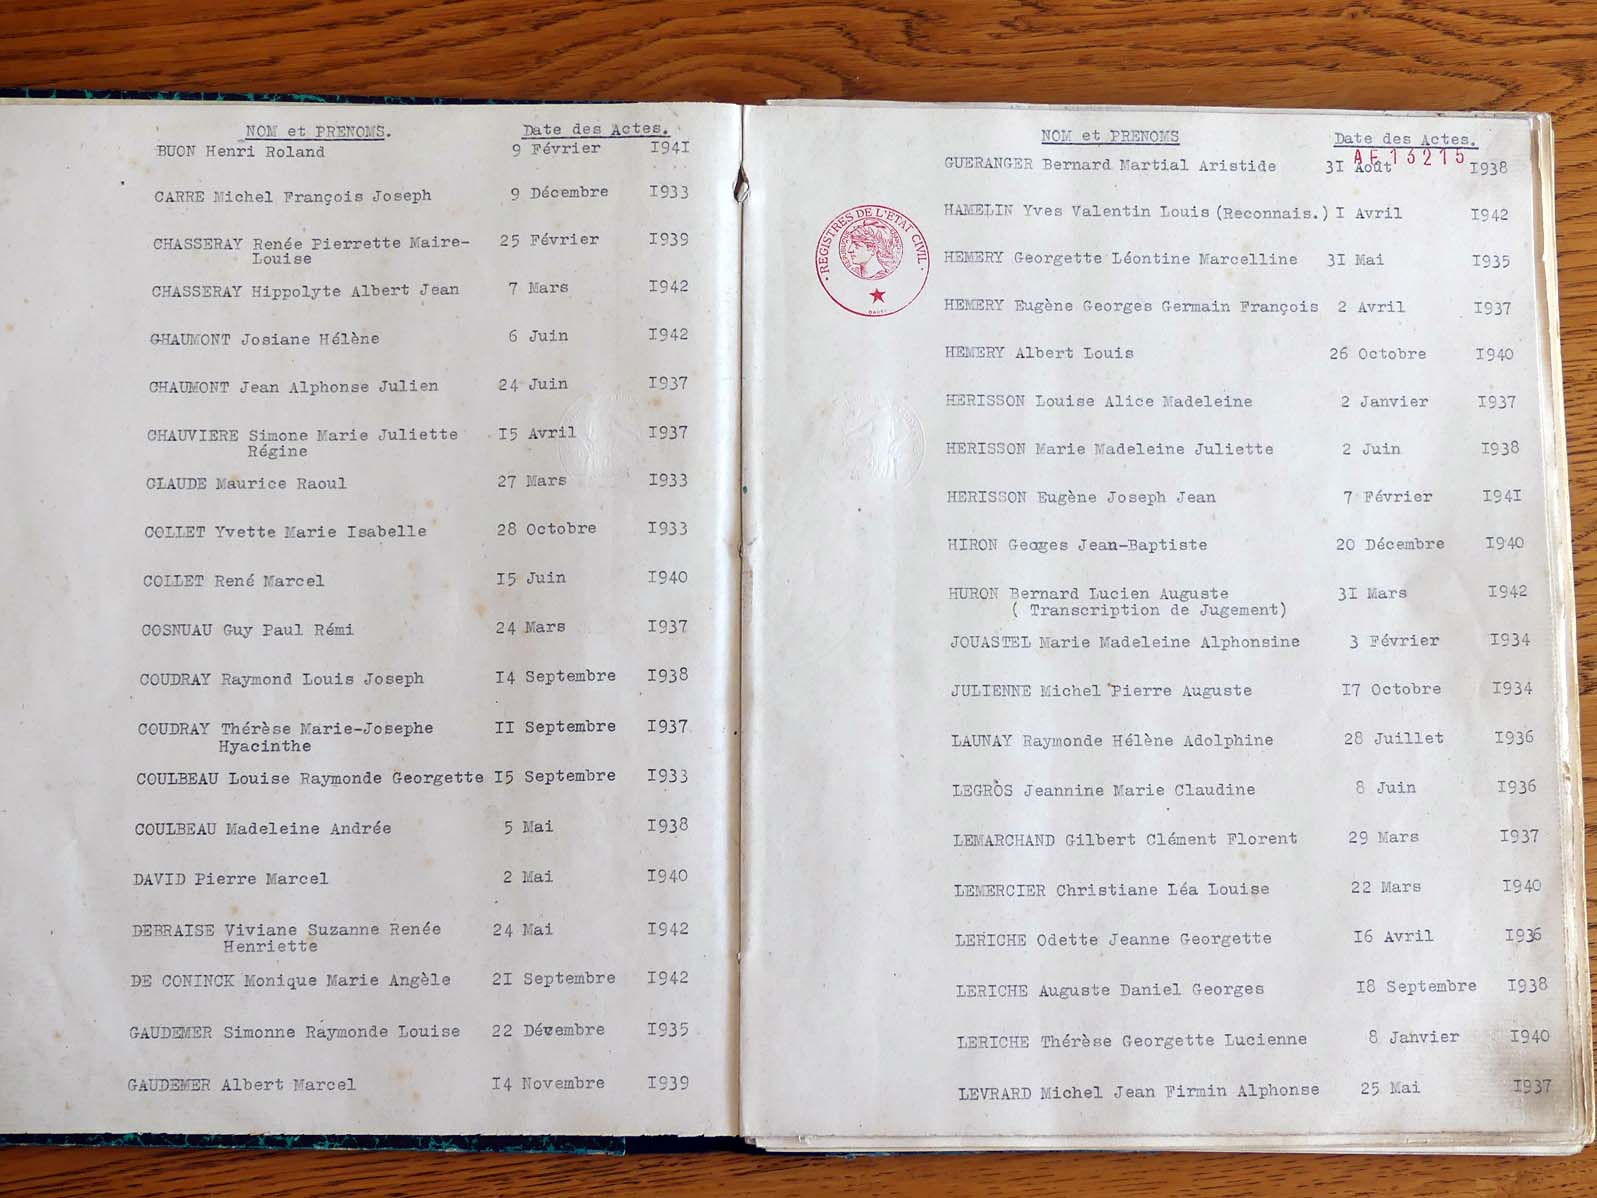 NOM et PRENOMS. Date des Actes.
BUON Henri Roland 9 Février I94I
CARRE Michel François Joseph 9 Décembre I933
CHASSERAY Renée Pierrette Maire- 25 Février I939
Louise
CHASSERAY Hippolyte Albert Jean 7 Mars I942
CHAUMONT Josiane Hélène 6 Juin I942
CHAUMONT Jean Alphonse Julien 24 Juin I937
CHAUVIERE Simone Marie Juliette I5 Avril I937
Régine
CLAUDE Maurice Raoul 27 Mars I933
COLLET Yvette Marie Isabelle 28 Octobre I933
COLLET René Marcel I5 Juin I940
COSNUAU Guy Paul Rémi 24 Mars I937
COUDRAY Raymond Louis Joseph I4 Septembre I938
COUDRAY Thérèse Marie-Josephe II Septembre I937
Hyacinthe
COULBEAU Louise Raymonde Georgette I5 Septembre I933
COULBEAU Madeleine Andrée 5 Mai I938
DAVID Pierre Marcel 2 Mai I940
DEBRAISE Viviane Suzanne Renée 24 Mai I942
Henriette
DE CONINCK Monique Marie Angèle 2I Septembre I942
GAUDEMER Simonne Raymonde Louise 22 Décembre I935
GAUDEMER Albert Marcel I4 Novembre I939
NOM et PRENOMS Date des Actes.
AE 13215
GUERANGER Bernard Martial Aristide 3I Août I938
HAMELIN Yves Valentin Louis (Reconnais.) I Avril I942
REGISTRES DE L'ETAT CIVIL
HEMERY Georgette Léontine Marcelline 3I Mai I935
HEMERY Eugène Georges Germain François 2 Avril I937
HEMERY Albert Louis 26 Octobre I940
HERISSON Louise Alice Madeleine 2 Janvier I937
HERISSON Marie Madeleine Juliette 2 Juin I938
HERISSON Eugène Joseph Jean 7 Février I94I
HIRON Georges Jean-Baptiste 20 Décembre I940
HURON Bernard Lucien Auguste 3I Mars I942
( Transcription de Jugement)
JOUASTEL Marie Madeleine Alphonsine 3 Février I934
JULIENNE Michel Pierre Auguste I7 Octobre I934
LAUNAY Raymonde Hélène Adolphine 28 Juillet I936
LEGROS Jeannine Marie Claudine 8 Juin I936
LEMARCHAND Gilbert Clément Florent 29 Mars I937
LEMERCIER Christiane Léa Louise 22 Mars I940
LERICHE Odette Jeanne Georgette I6 Avril I936
LERICHE Auguste Daniel Georges I8 Septembre I938
LERICHE Thérèse Georgette Lucienne 8 Janvier I940
LEVRARD Michel Jean Firmin Alphonse 25 Mai I937